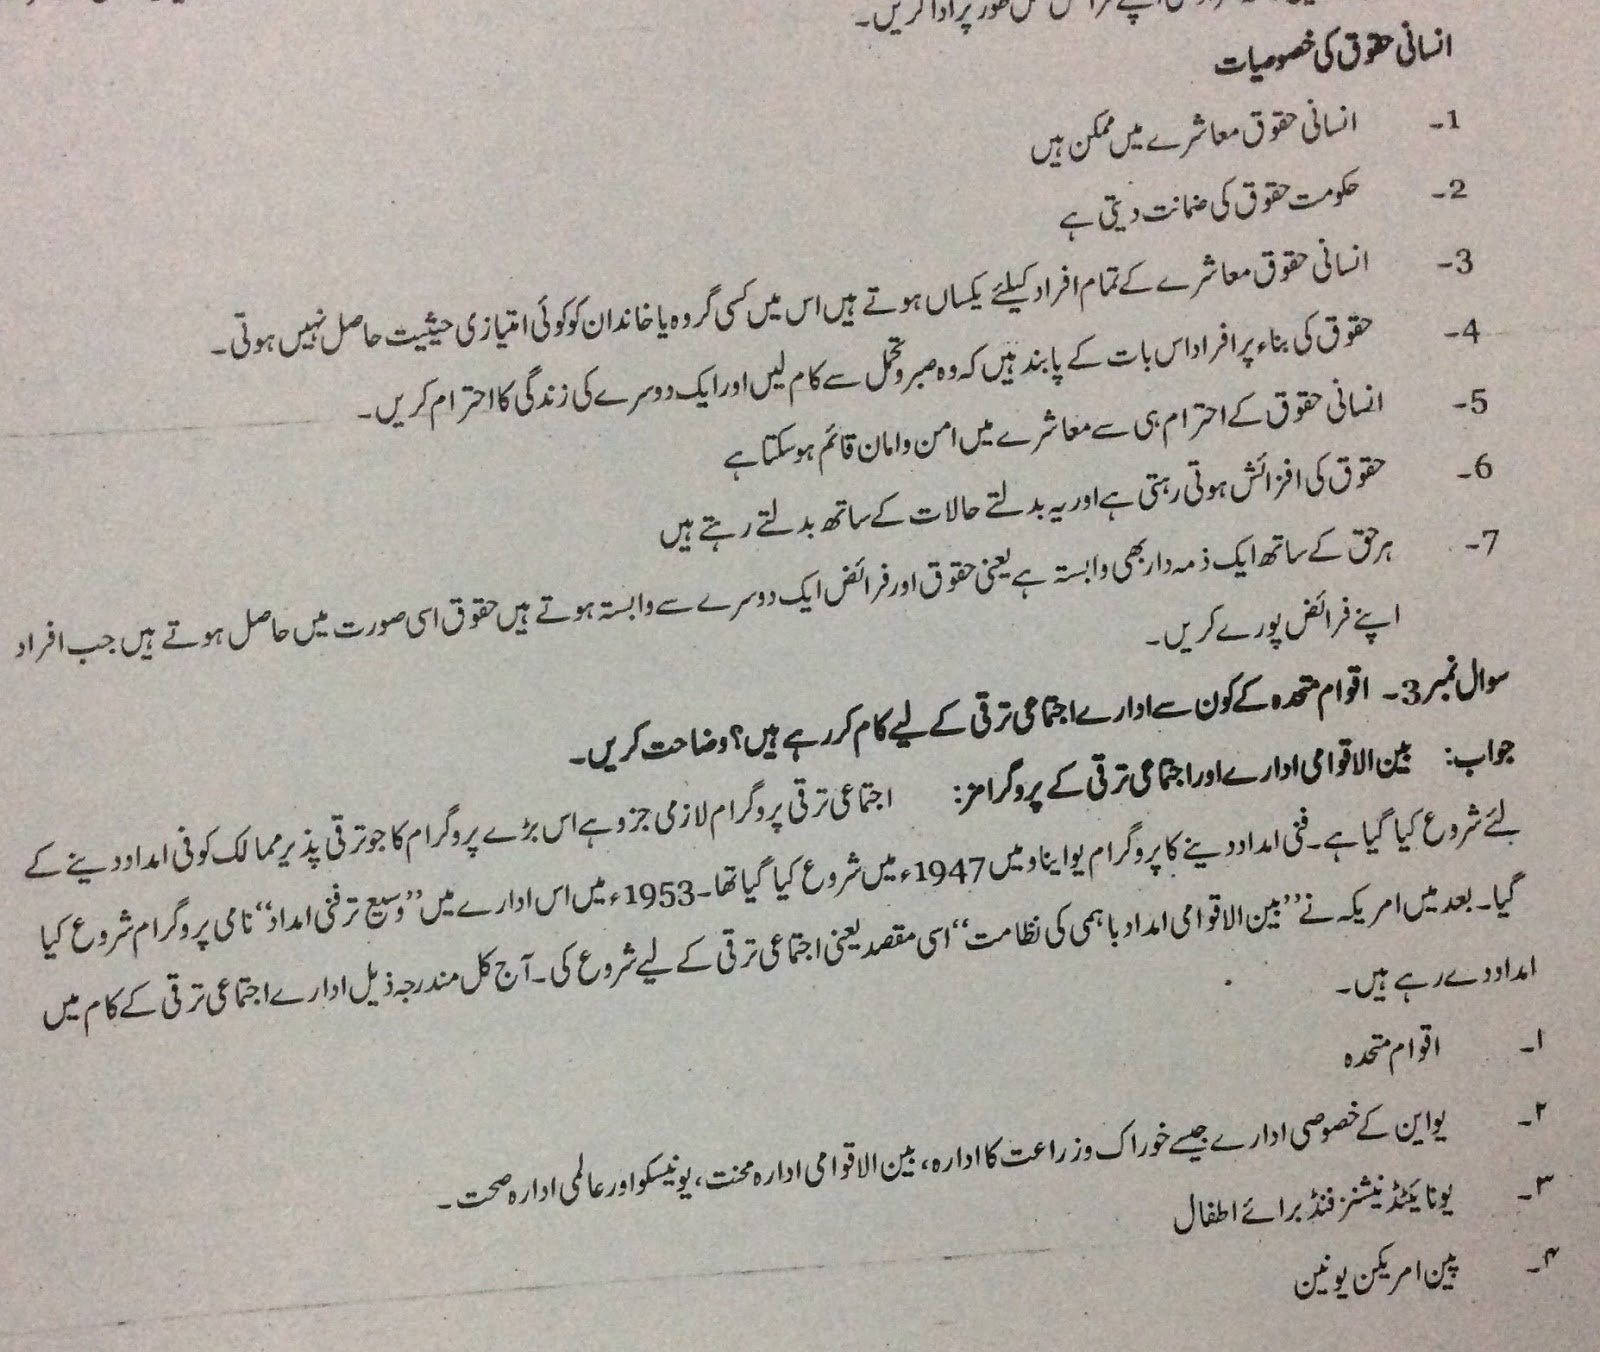 اپنے فرائض
طور پر ادا کریں۔
انسانی حقوق کی خصوصیات
1۔ انسانی حقوق معاشرے میں ممکن ہیں
2۔ حکومت حقوق کی ضمانت دیتی ہے
3۔ انسانی حقوق معاشرے کے تمام افراد کیلئے یکساں ہوتے ہیں اس میں کسی گروہ یا خاندان کو کوئی امتیازی حیثیت حاصل نہیں ہوتی۔
4۔ حقوق کی بناء پر افراد اس بات کے پابند ہیں کہ وہ صبر و تحمل سے کام لیں اور ایک دوسرے کی زندگی کا احترام کریں۔
5۔ انسانی حقوق کے احترام ہی سے معاشرے میں امن و امان قائم ہو سکتا ہے
6۔ حقوق کی افزائش ہوتی رہتی ہے اور یہ بدلتے حالات کے ساتھ بدلتے رہتے ہیں
7۔ ہر حق کے ساتھ ایک ذمہ دار بھی وابستہ ہے یعنی حقوق اور فرائض ایک دوسرے سے وابستہ ہوتے ہیں حقوق اسی صورت میں حاصل ہوتے ہیں جب افراد
اپنے فرائض پورے کریں۔
سوال نمبر 3۔ اقوام متحدہ کے کون سے ادارے اجتماعی ترقی کے لیے کام کر رہے ہیں؟ وضاحت کریں۔
جواب: بین الاقوامی ادارے اور اجتماعی ترقی کے پروگرامز: اجتماعی ترقی پروگرام لازمی جزو ہے اس بڑے پروگرام کا جو ترقی پذیر ممالک کو فنی امداد دینے کے
لئے شروع کیا گیا ہے۔ فنی امداد دینے کا پروگرام یو این او میں 1947ء میں شروع کیا گیا تھا۔ 1953ء میں اس ادارے میں ”وسیع تر فنی امداد“ نامی پروگرام شروع کیا
گیا۔ بعد میں امریکہ نے ”بین الاقوامی امداد باہمی کی نظامت“ اسی مقصد یعنی اجتماعی ترقی کے لیے شروع کی۔ آج کل مندرجہ ذیل ادارے اجتماعی ترقی کے کام میں
امداد دے رہے ہیں۔
۱۔ اقوام متحدہ
۲۔ یو این کے خصوصی ادارے جیسے خوراک و زراعت کا ادارہ، بین الاقوامی ادارہ محنت، یونیسکو اور عالمی ادارہ صحت۔
۳۔ یونائیٹڈ نیشنز فنڈ برائے اطفال
۴۔ پین امریکن یونین